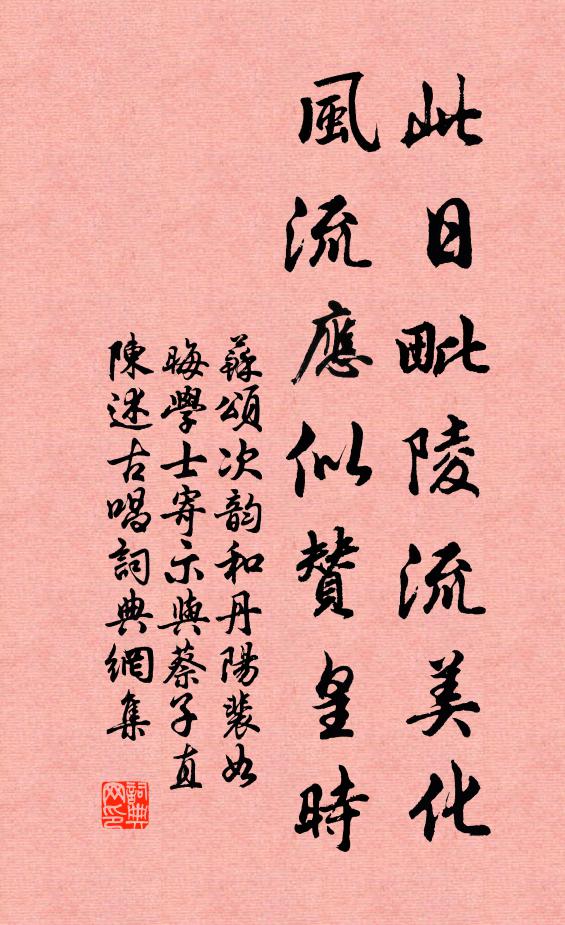 此日毗陵流美化
風流應似贊皇時
蘇頌次韵和丹陽裴如
晦學士寄示與蔡子直
陳述古唱詞典網集
詞典网印